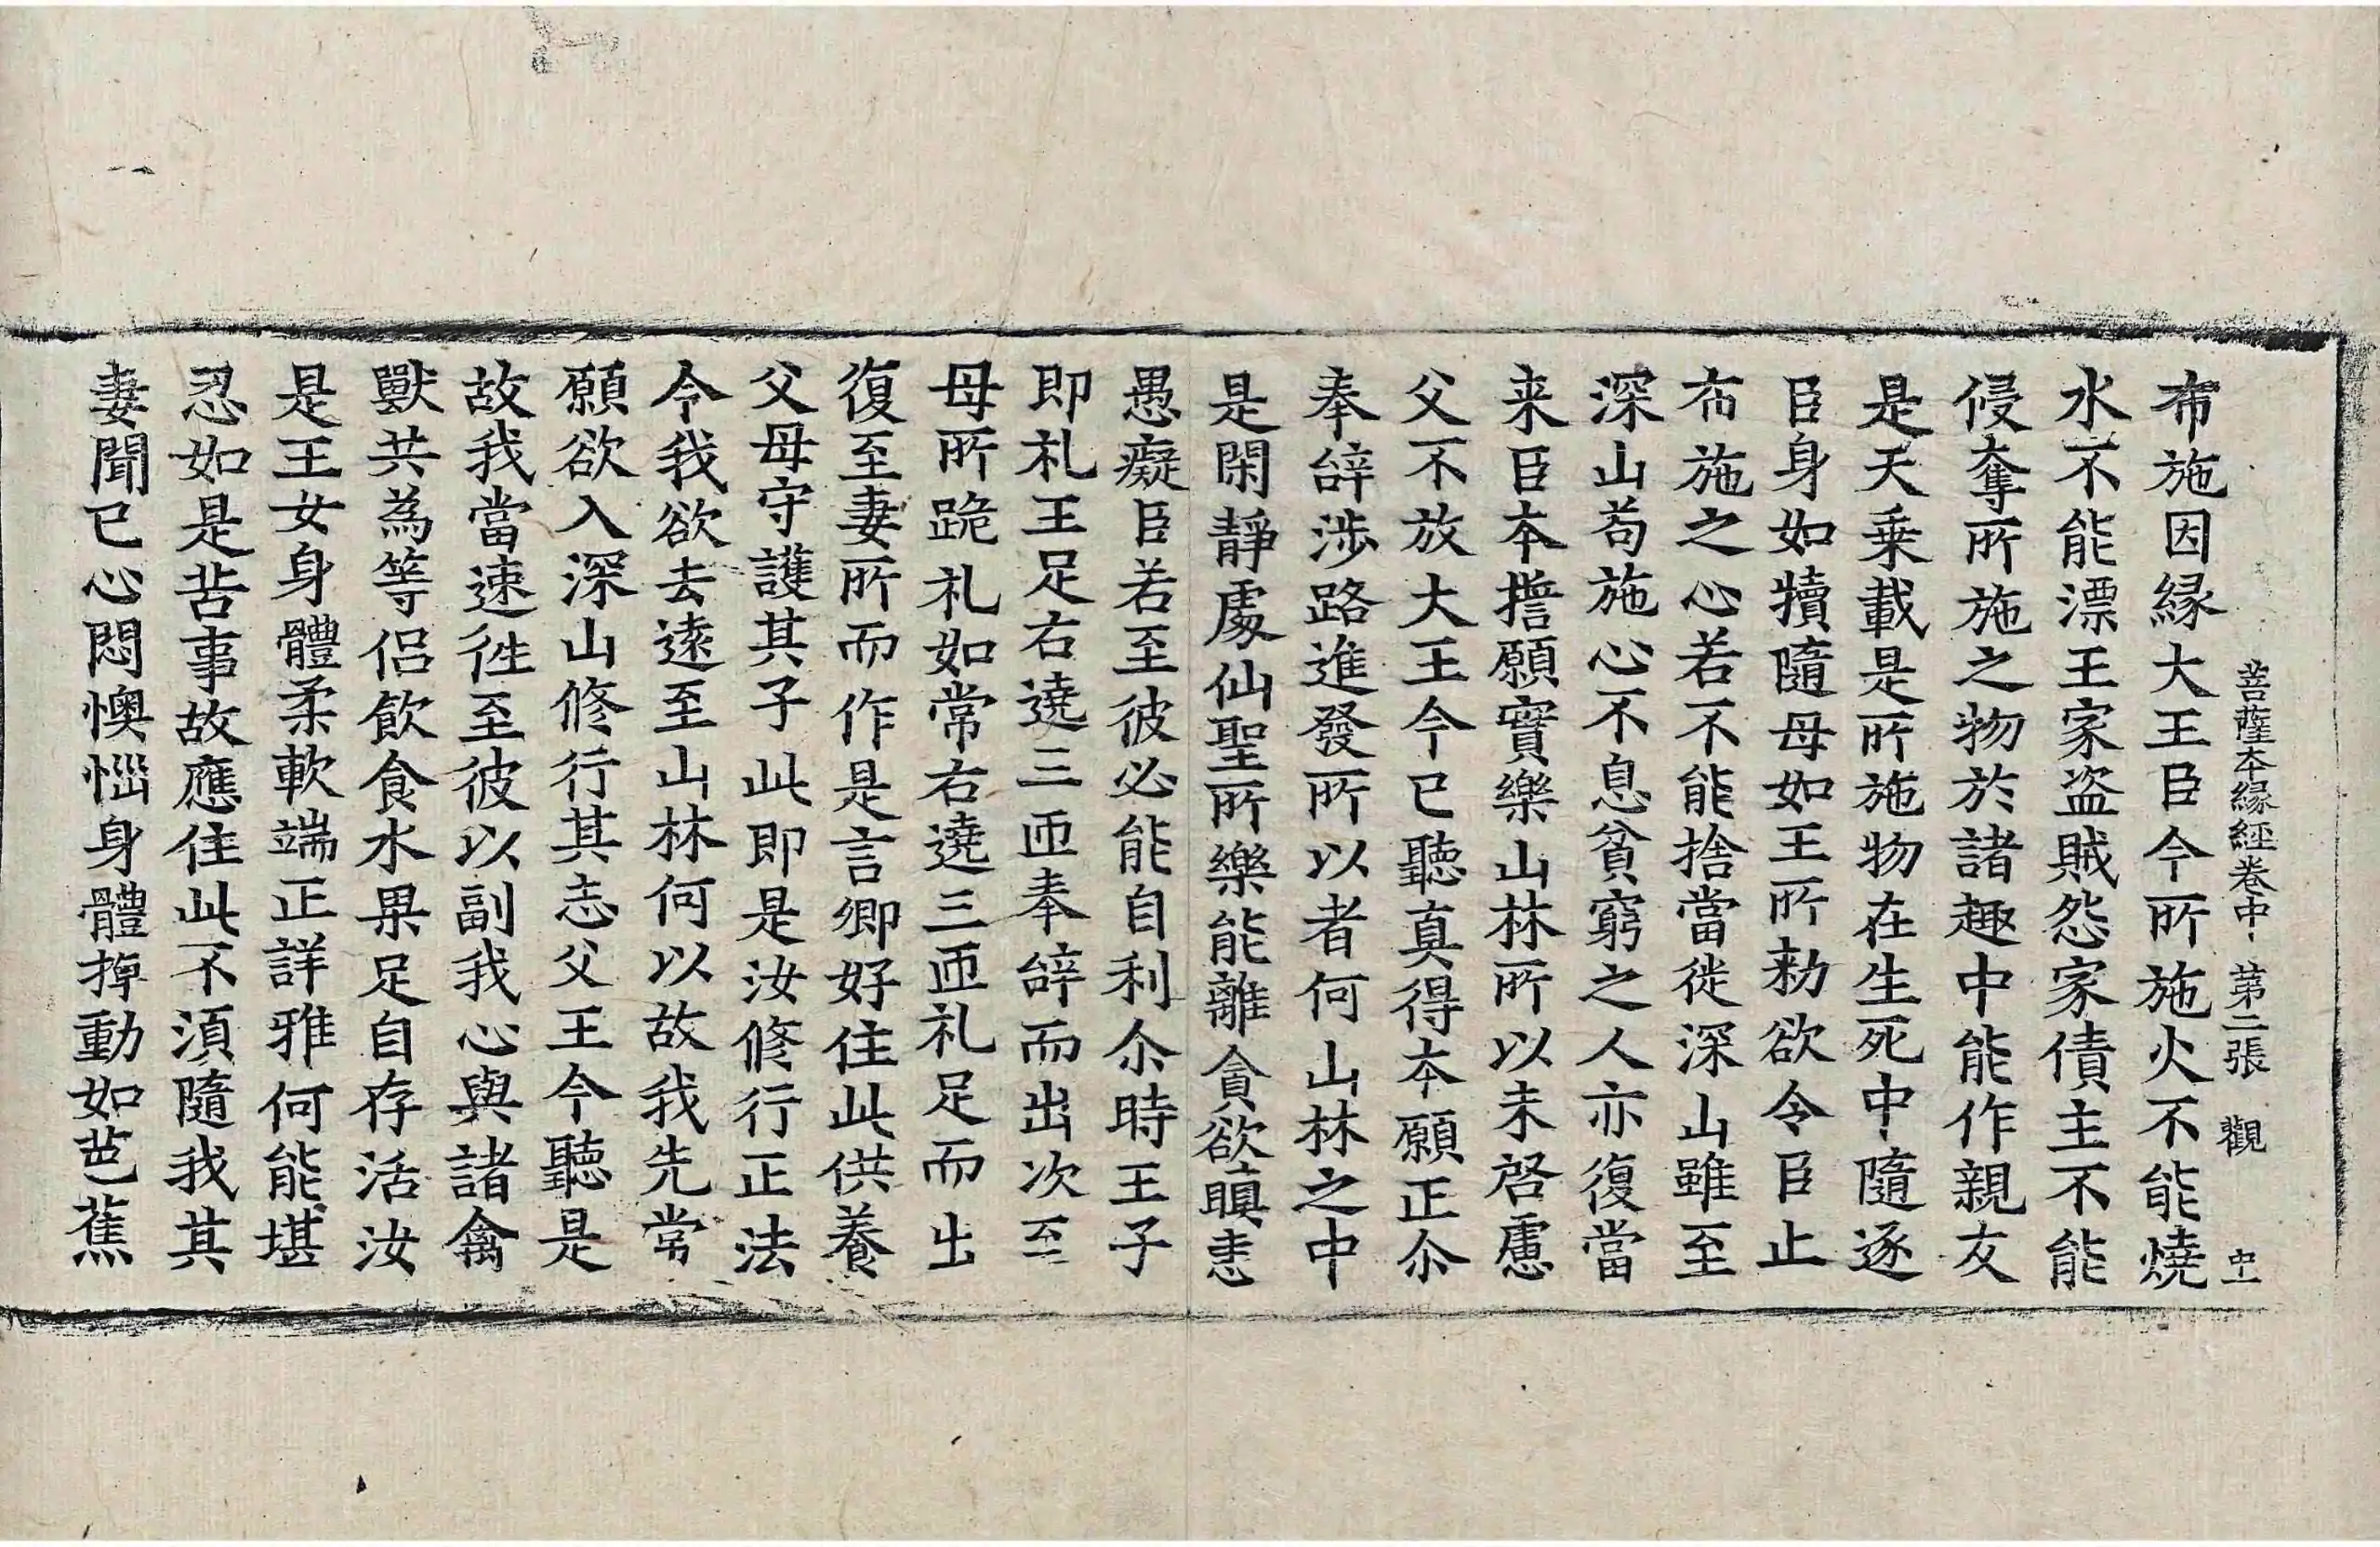 菩薩本緣經卷中 第二張 觀
布施因緣大王臣今所施火不能燒
水不能漂王家盗賊怨家債主不能
侵奪所施之物於諸趣中能作親友
是天乗載是所施物在生死中隨逐
臣身如犢隨母如王所勑欲令臣止
布施之心若不能捨當徙深山雖至
深山苟施心不息貧窮之人亦復當
来臣本擔願實樂山林所以未啓慮
父不放大王今已聽真得本願正尒
奉辝涉路進發所以者何山林之中
是閑靜處仙聖所樂能離貪欲瞋恚
愚癡臣若至彼必能自利尒時王子
即礼王足右遶三匝奉辝而出次至
母所跪礼如常右遶三匝礼足而出
復至妻所而作是言卿好住此供養
父母守護其子此即是汝修行正法
令我欲去遠至山林何以故我先常
願欲入深山修行其志父王今聽是
故我當速徃至彼以副我心與諸禽
獸共為等侣飲食水果足自存活汝
是王女身體柔軟端正詳雅何能堪
忍如是苦事故應住此不湏隨我其
妻聞已心悶懊惱身體掉動如芭蕉